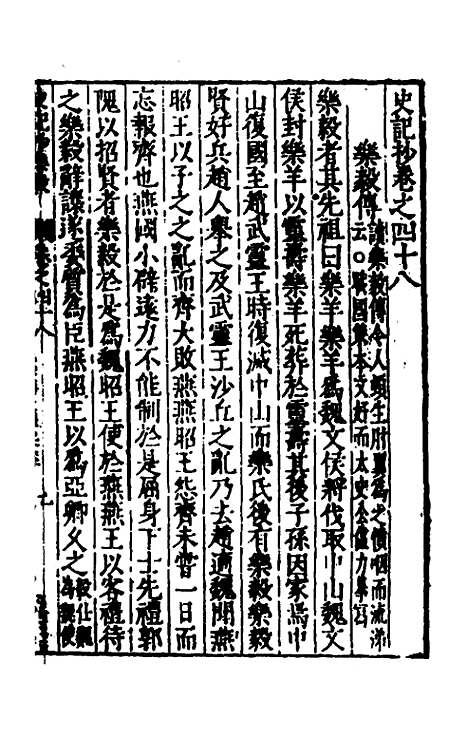 史記抄卷之四十八
樂毅傳讀樂毅傳令人頰生肝翼為之憤咽而流涕
云○戰國策本文好而太史公儘力摹寫
樂毅者其先祖曰樂羊樂羊為魏文侯將伐取中山魏文
侯封樂羊以靈壽樂羊死葬於靈壽其後子孫因家焉中
山復國至趙武靈王時復滅中山而樂氏後有樂毅樂毅
賢好兵趙人舉之及武靈王沙丘之亂乃去趙適魏聞燕
昭王以子之之亂而齊大敗燕燕昭王怨齊未嘗一日而
忘報齊也燕國小辟遠力不能制於是屈身下士先禮郭
隗以招賢者樂毅於是為魏昭王使於燕燕王以客禮待
之樂毅辭讓遂委質為臣燕昭王以為亞卿久之毅仕魏為魏使